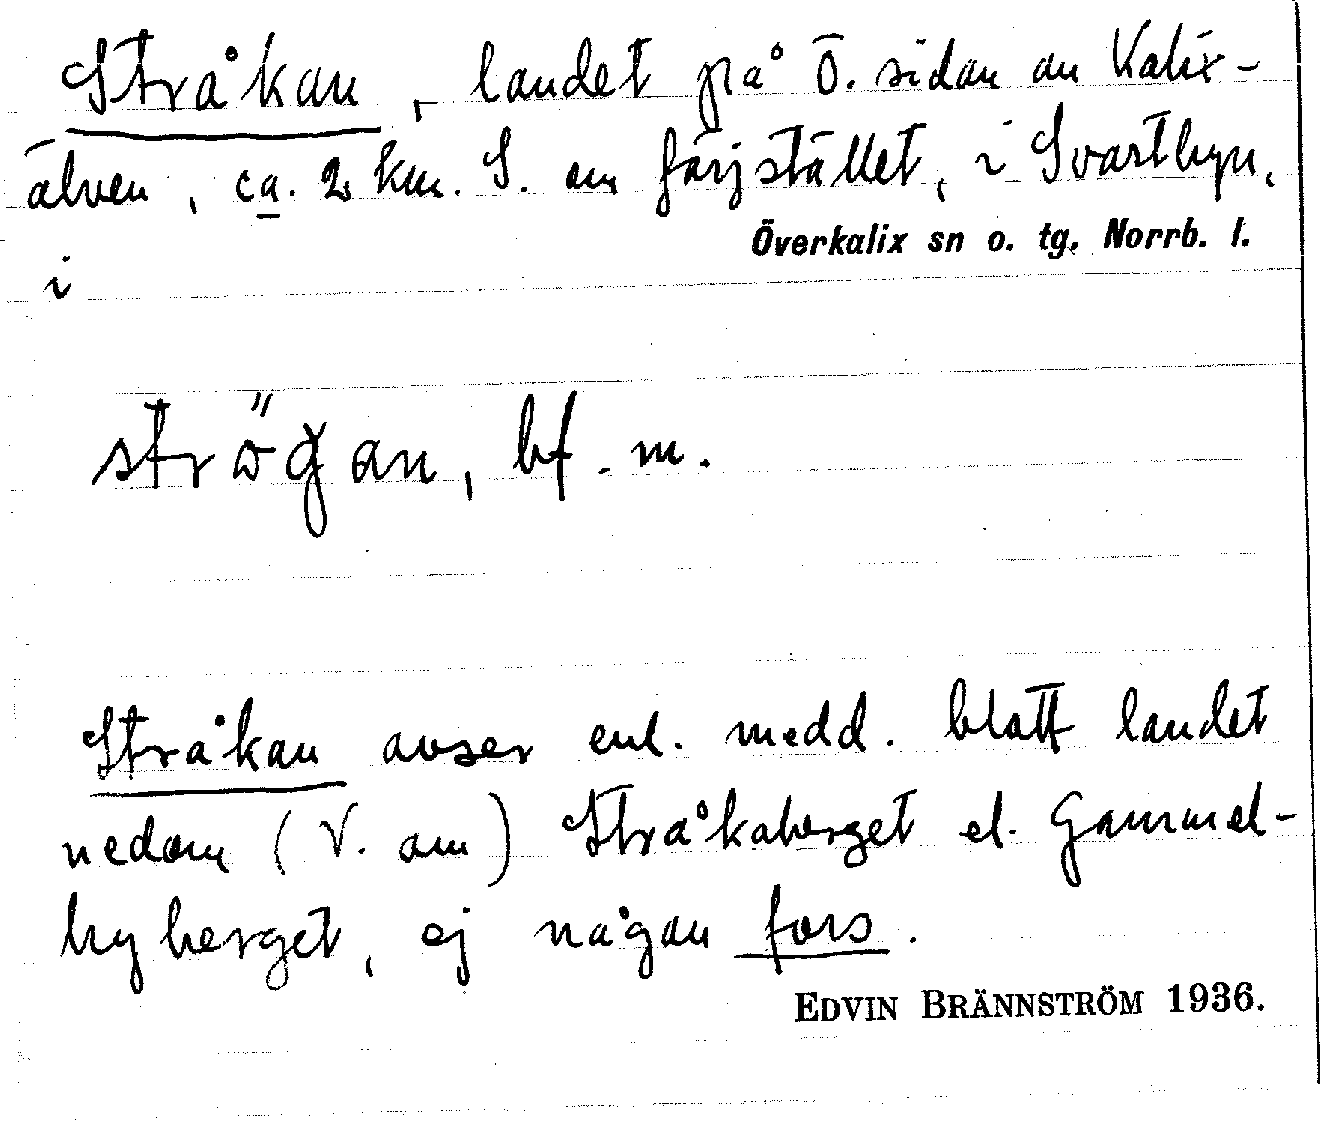 Stråkan, landet på Ö. sidan av Kalix-
älven, ca. 2 km. S. om färjstället, i Svartbyn,
Överkalix sn o. tg. Norrb. l.
i
strögan, bf. m.
Stråkan avser enl. medd. blott landet
nedom (V. om) Stråkaberget el. Gammel-
byberget, ej någon fors.
EDVIN BRÄNNSTRÖM 1936.